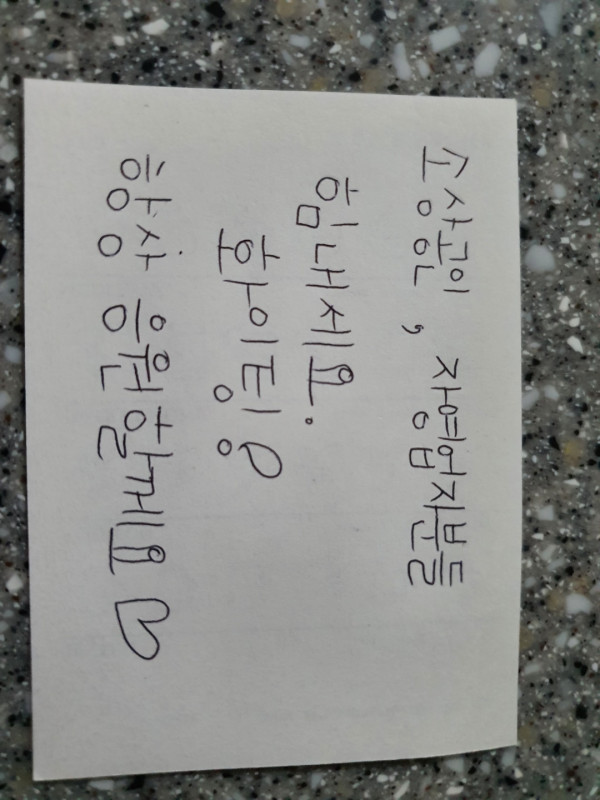 소상공인, 자영업자분들
힘내세요.
화이팅!
항상 응원할께요♡